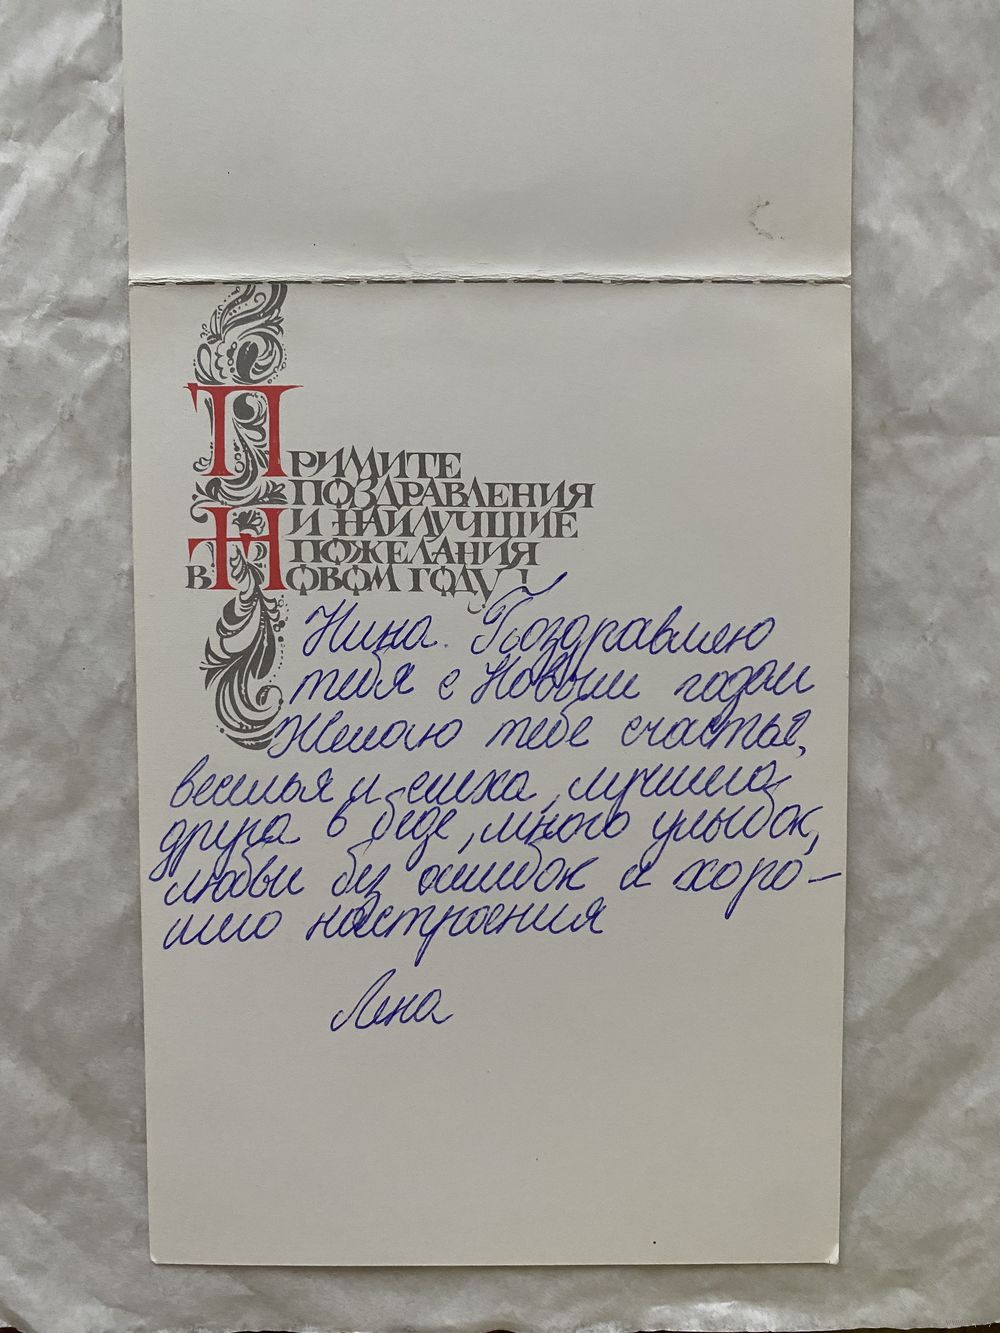 Примите
поздравления
и наилучшие
пожелания
в Новом году!
Нина. Поздравляю
тебя с Новым годом
Желаю тебе счастья,
веселья и смеха, лучшего
друга в беде, много улыбок,
любви без ошибок и хоро-
шего настроения
Лена